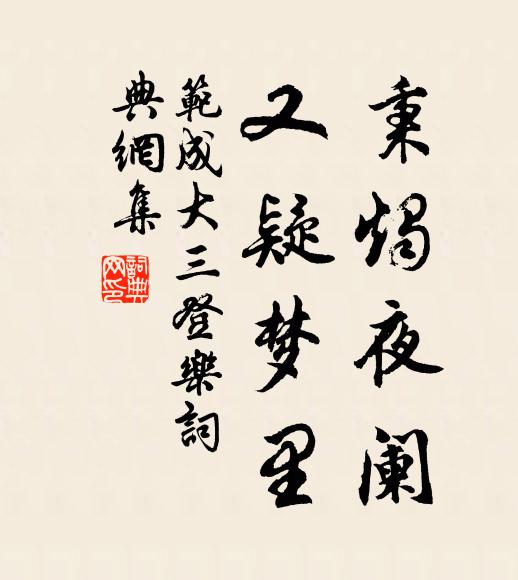 秉烛夜阑
又疑梦里
範成大三登樂詞
典網集
詞典网印